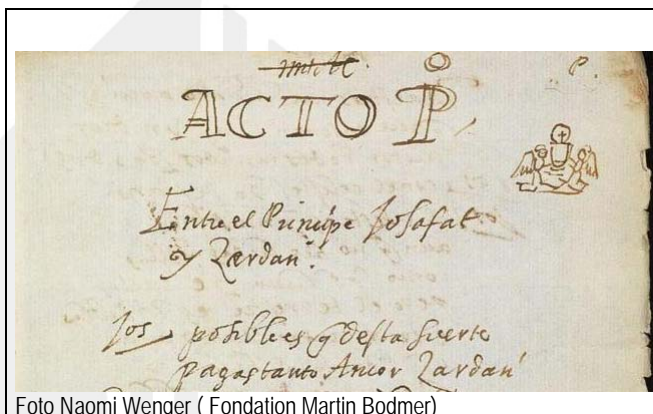 ACTO P.º
P.
Entre el Principe Josafat
y Zardan.
Jos posible es q desta suerte
pagas tanto Amor Zardan
Foto Naomi Wenger ( Fondation Martin Bodmer)